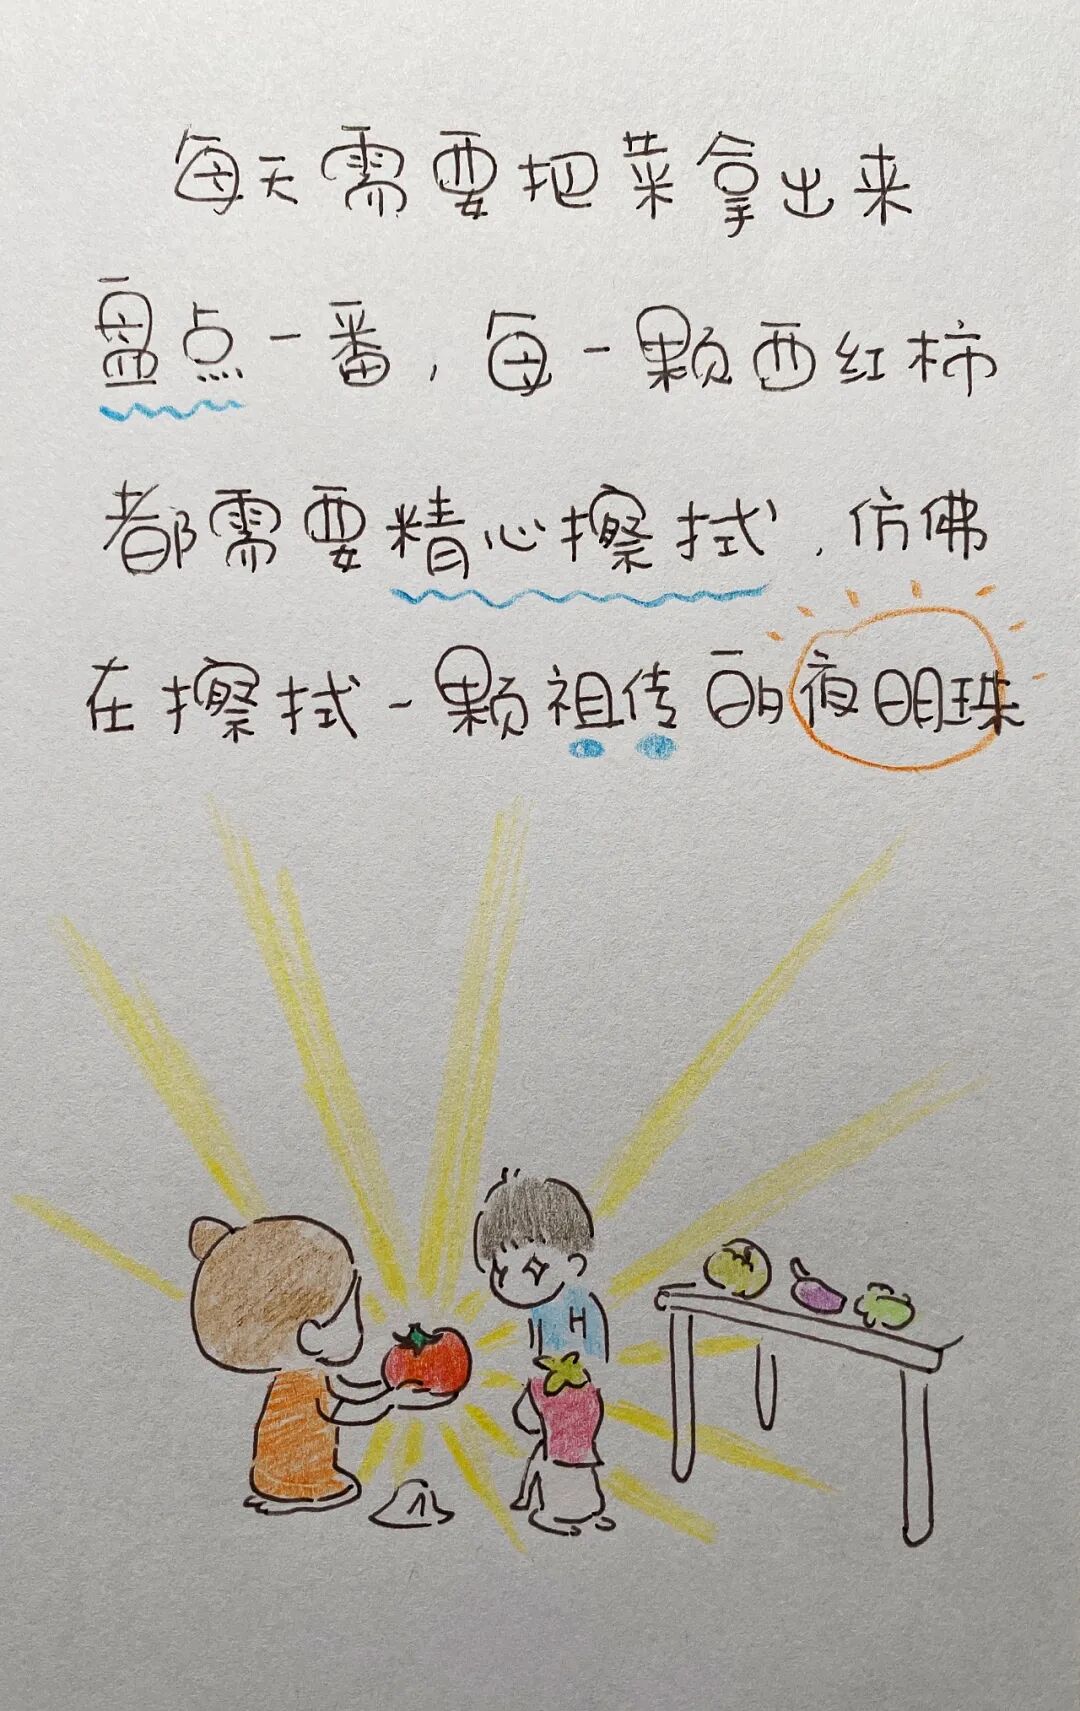 每天需要把菜拿出来
盘点一番，每一颗西红柿
都需要精心擦拭，仿佛
在擦拭一颗祖传的夜明珠
H